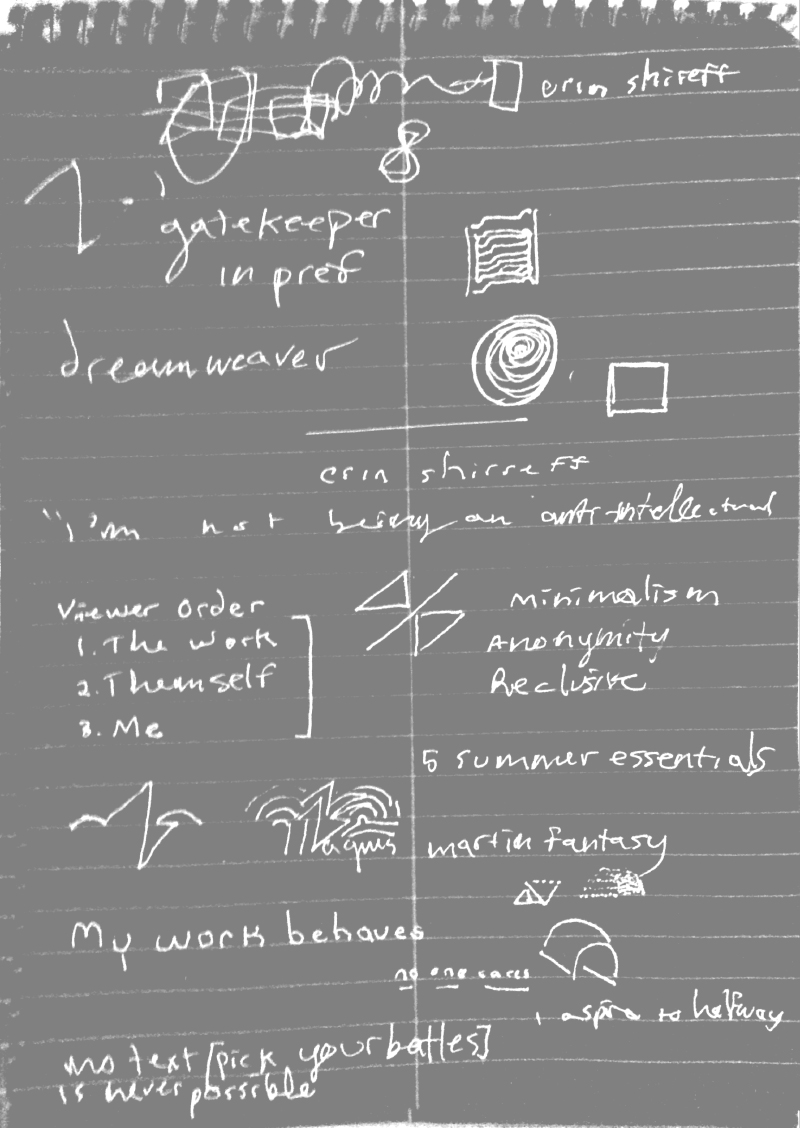 erin shireff
8
gatekeeper
in pref
dreamweaver
erin shirreff
"i'm not being an anti-intellectual
Viewer Order
1. The work
2. Themself
3. Me
Minimalism
Anonymity
Reclusive
5 summer essentials
Magnus
martin fantasy
My work behaves
no one cares
i aspire to halfway
no text [pick your battles]
is never possible